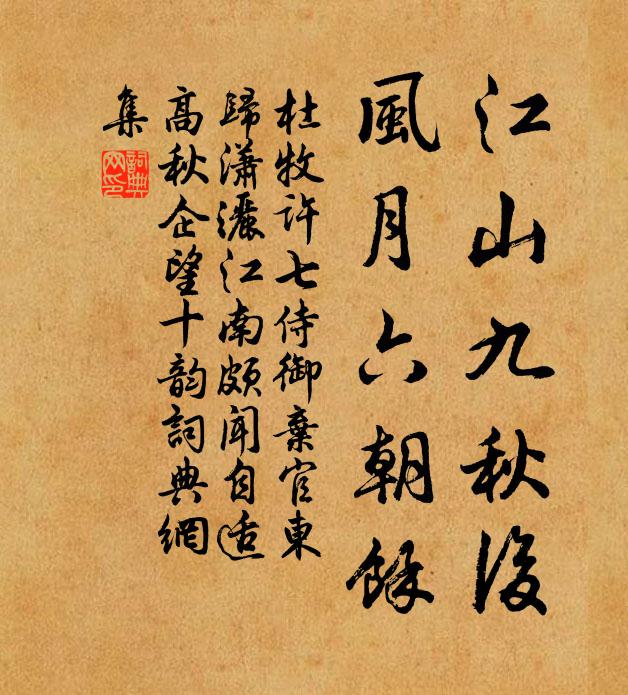 江山九秋後
風月六朝餘
杜牧許七侍御棄官東
歸瀟灑江南頗聞自適
高秋企望十韵詞典網
集
詞典網印